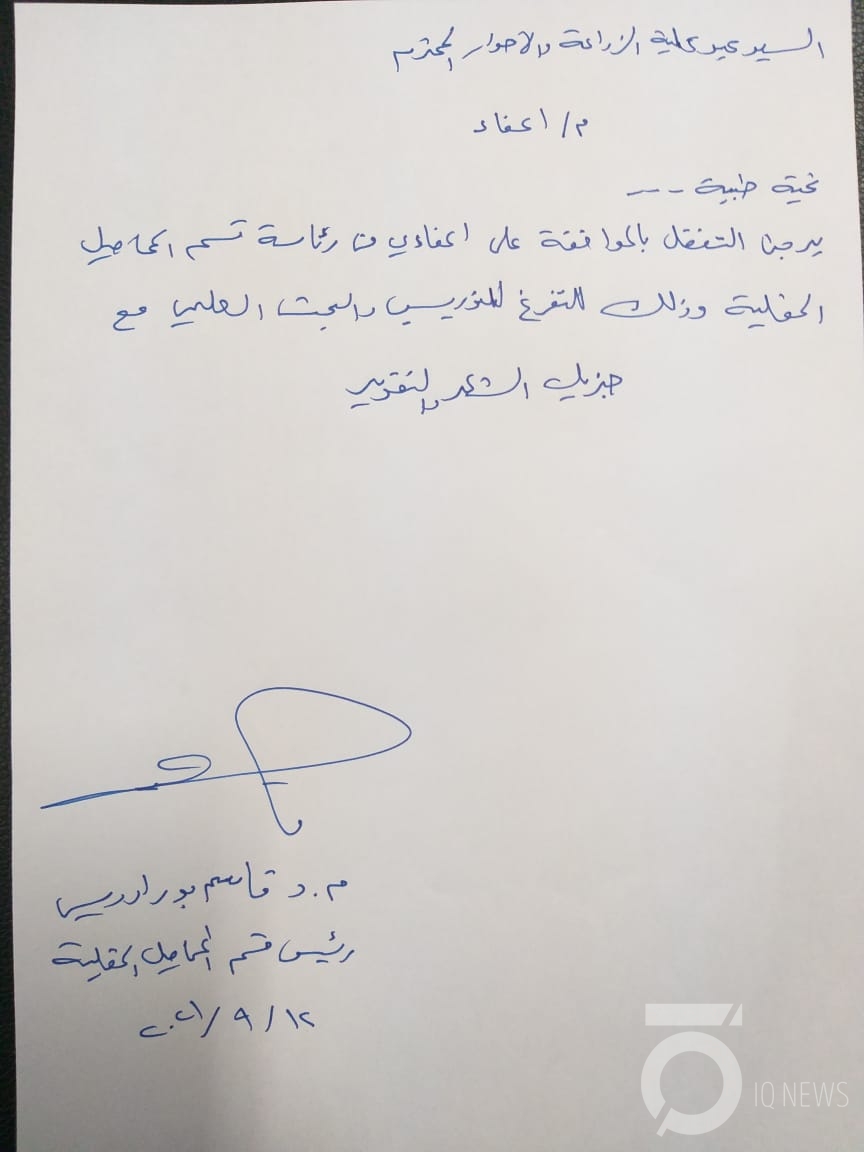 السيد عميد كلية الزراعة والاهوار المحترم
م/ اعفاء
تحية طيبة ---
يرجى التفضل بالموافقة على اعفائي من رئاسة قسم المحاصيل
الحقلية وذلك للتفرغ للتدريس والبحث العلمي مع
جزيل الشكر والتقدير
م.د قاسم
رئيس قسم المحاصيل الحقلية
١٢ / ٩ / ٢٠٢١
IQ NEWS